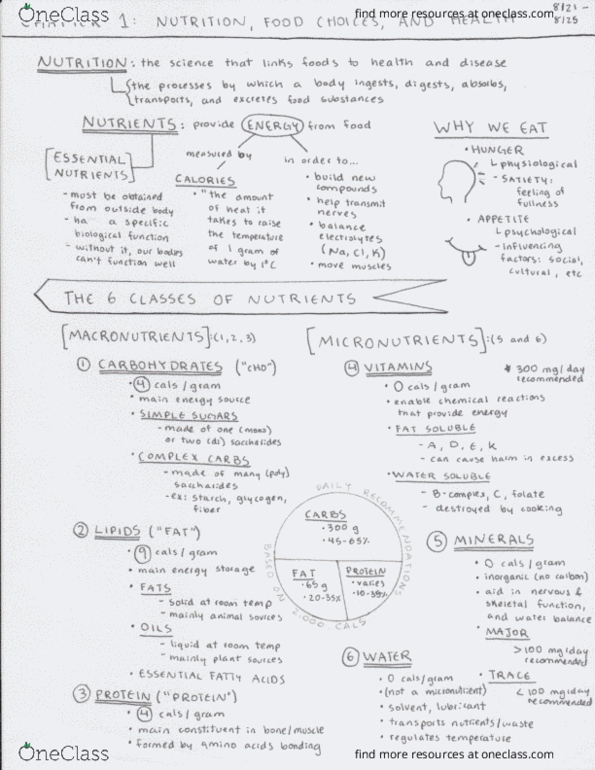 OneClass
find more resources at oneclass.com
8/21 -
8/25
CHAPTER 1: NUTRITION, FOOD CHOICES, AND HEALTH
NUTRITION: the science that links foods to health and disease
the processes by which a body ingests, digests, absorbs,
transports, and excretes food substances
NUTRIENTS: provide ENERGY from food
[ESSENTIAL
NUTRIENTS]
- must be obtained
from outside body
- ha a specific
biological function
- without it, our bodies
can't function well
measured by
CALORIES
• "the amount
of heat it
takes to raise
the temperature
of 1 gram of
water by 1°C
in order to...
• build new
compounds
• help transmit
nerves
• balance
electrolytes
(Na, Cl, K)
• move muscles
WHY WE EAT
• HUNGER
physiological
- SATIETY:
feeling of
fullness
• APPETITE
psychological
- influencing
factors: social,
cultural, etc
THE 6 CLASSES OF NUTRIENTS
[MACRONUTRIENTS]:(1,2,3)
① CARBOHYDRATES ("CHO")
• 4 cals / gram
• main energy source
• SIMPLE SUGARS
- made of one (mono)
or two (di) saccharides
• COMPLEX CARBS
- made of many (poly)
saccharides
- ex: starch, glycogen,
fiber
② LIPIDS ("FAT")
• 9 cals / gram
• main energy storage
• FATS
- solid at room temp
- mainly animal sources
• OILS
- liquid at room temp
- mainly plant sources
• ESSENTIAL FATTY ACIDS
③ PROTEIN ("PROTEIN")
• 4 cals / gram
• main constituent in bone/muscle
• formed by amino acids bonding
DAILY RECOMMENDATIONS
BASED ON 2,000 CALS
CARBS
• 300 g
• 45-65%
FAT
• 65g
• 20-35%
PROTEIN
• varies
• 10-35%
[MICRONUTRIENTS]:(5 and 6)
④ VITAMINS
* 300 mg/day
recommended
• 0 cals / gram
• enable chemical reactions
that provide energy
• FAT SOLUBLE
- A, D, E, K
- can cause harm in excess
• WATER SOLUBLE
- B-complex, C, folate
- destroyed by cooking
⑤ MINERALS
• 0 cals / gram
• inorganic (no carbon)
• aid in nervous &
skeletal function,
and water balance
• MAJOR
>100 mg/day
recommended
• TRACE
<100 mg/day
recommended
⑥ WATER
• 0 cals/gram
• (not a micronutrient)
• solvent, lubricant
• transports nutrients/waste
• regulates temperature
OneClass
find more resources at oneclass.com